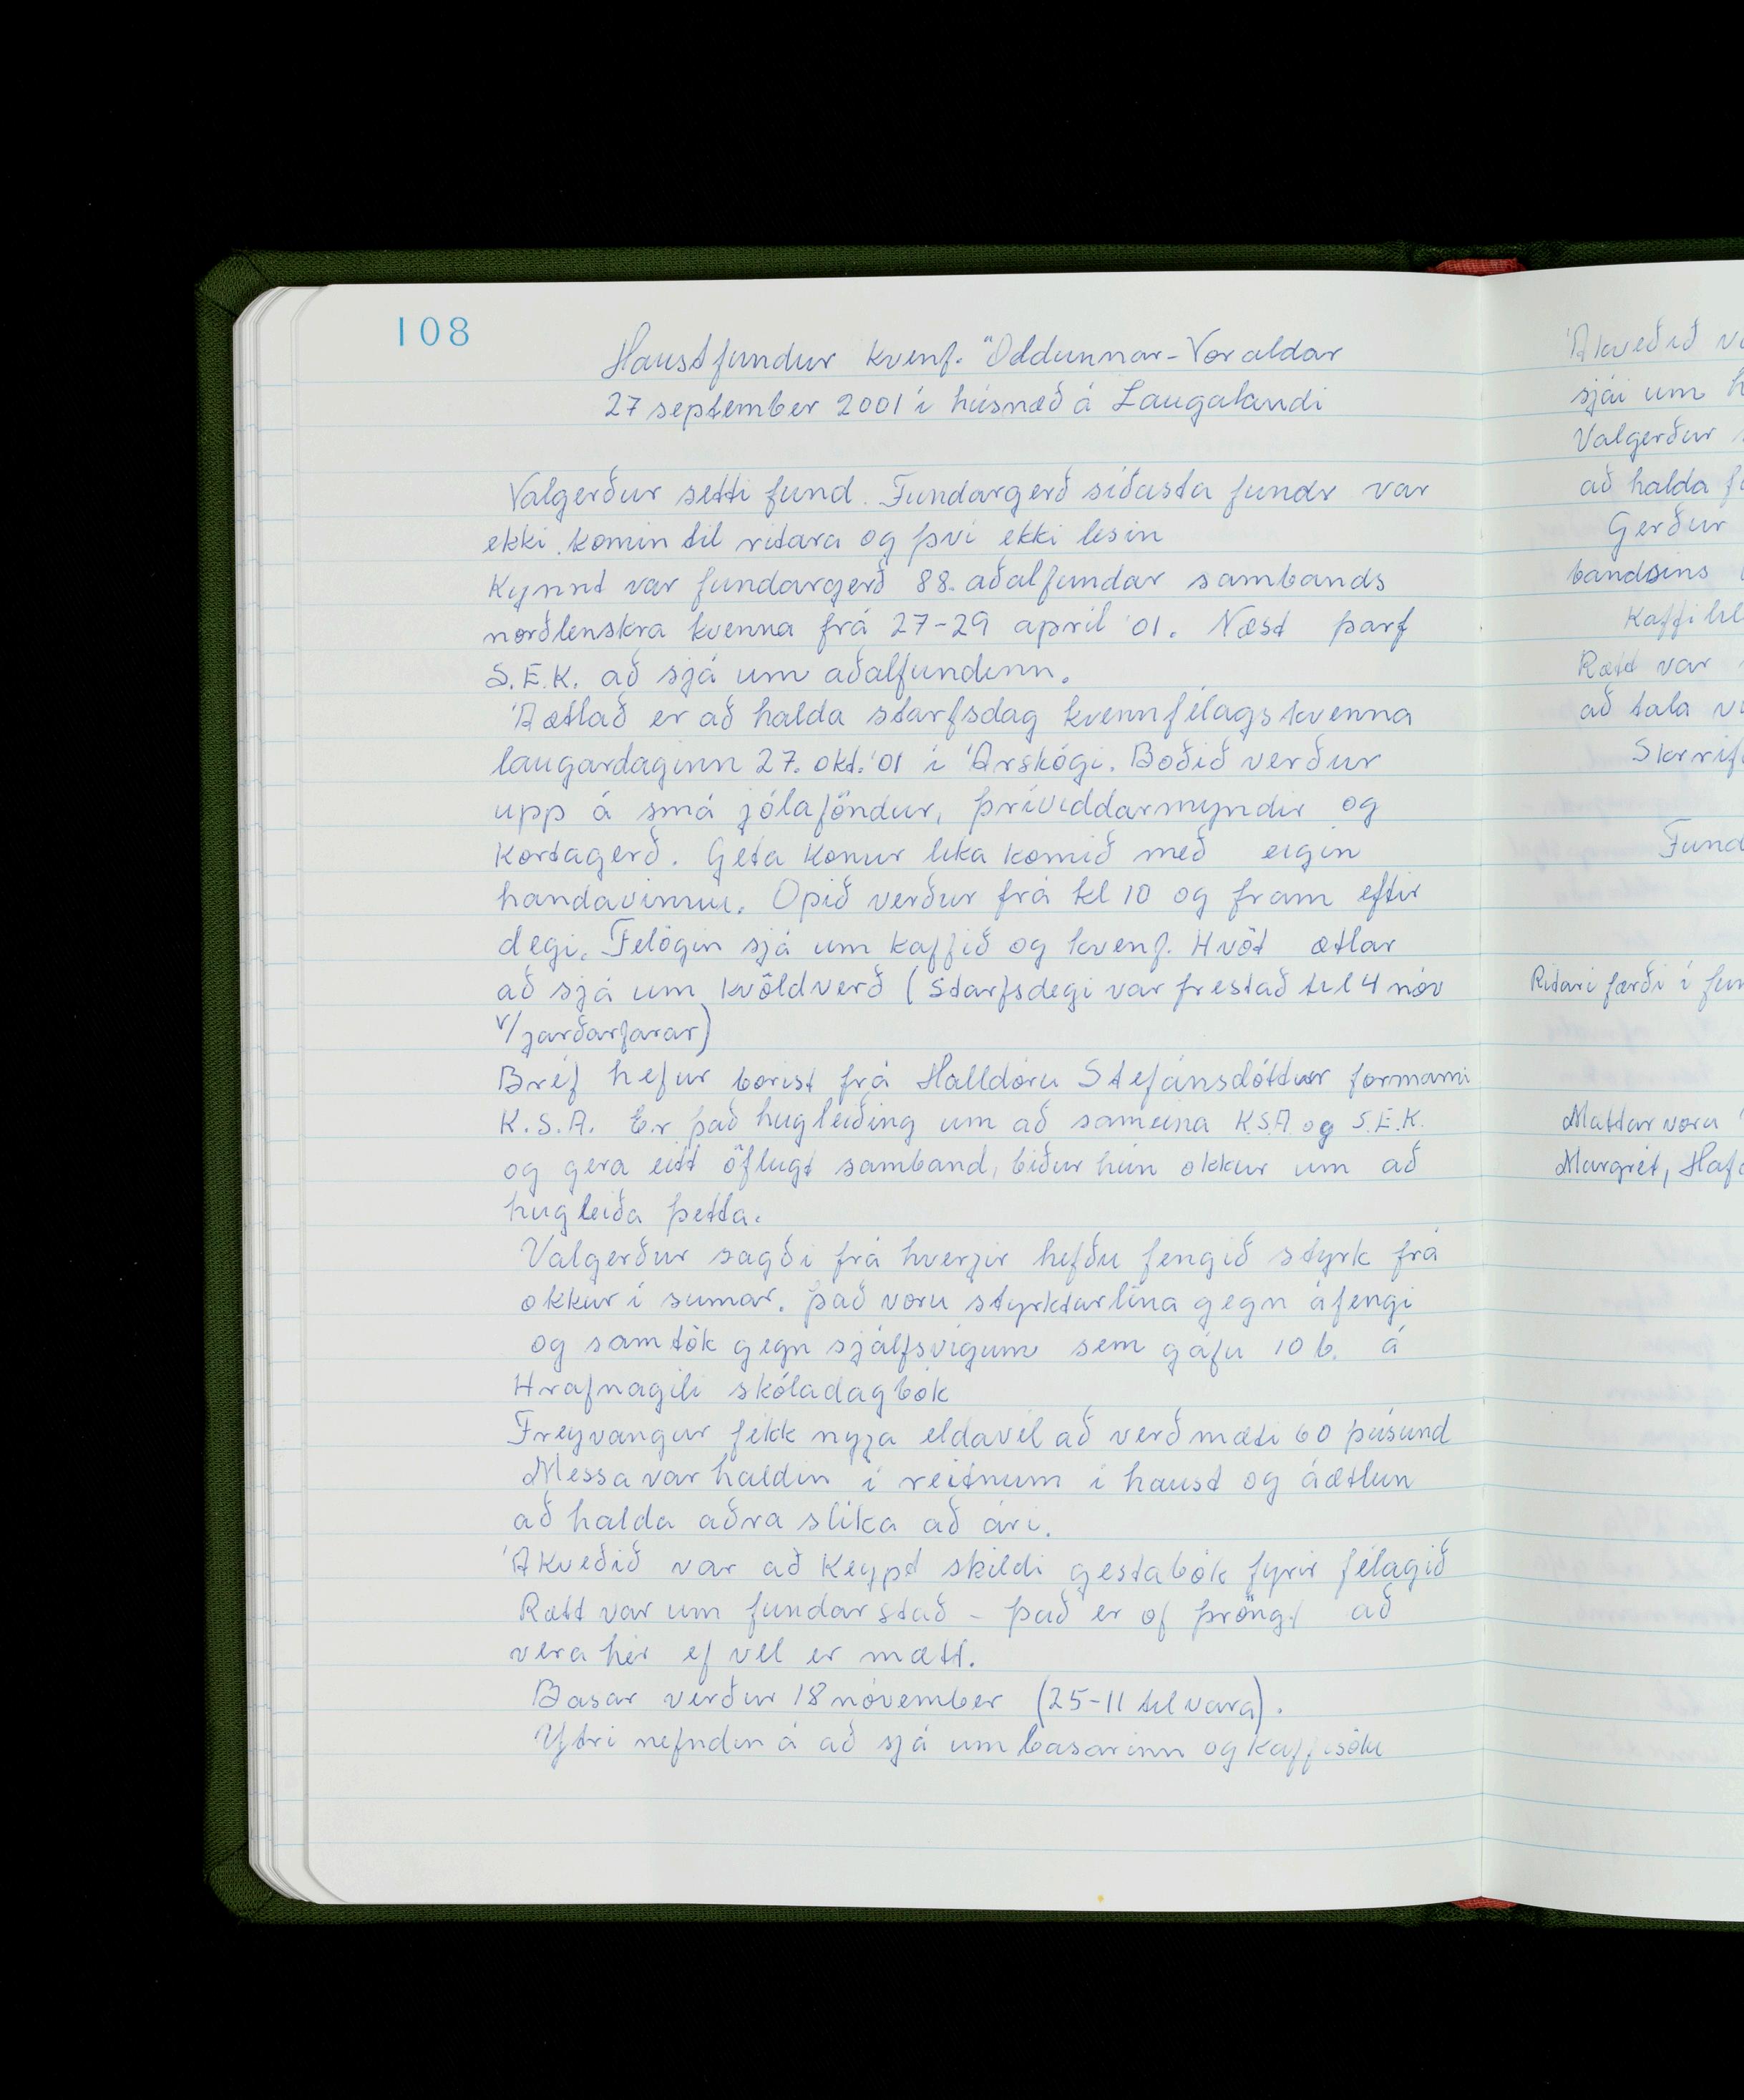 108
Haustfundur kvenf. Öldunnar-Voraldar
27 september 2001 í húsnæð á Laugalandi
Valgerður setti fund. Fundargerð síðasta fundr var
ekki komin til ritara og því ekki lesin
Kynnt var fundargerð 88. aðalfundar sambands
norðlenskra kvenna frá 27-29 apríl '01. Næst þarf
S.E.K. að sjá um aðalfundinn.
Áætlað er að halda starfsdag kvennfélagskvenna
laugardaginn 27. okt. '01 í Árskógi. Boðið verður
upp á smá jólaföndur, þrívíddarmyndir og
Kortagerð. Geta konur líka komið með eigin
handavinnu. Opið verður frá kl 10 og fram eftir
degi. Felögin sjá um kaffið og kvenf. Hvöt ætlar
að sjá um kvöldverð (Starfsdegi var frestað til 4 nóv
v/jarðarfarar)
Bréf hefur borist frá Halldóru Stefánsdóttur formanni
K.S.A. Er það hugleiðing um að sameina K.S.A. og S.E.K.
og gera eitt öflugt samband, biður hún okkur um að
hugleiða þetta.
Valgerður sagði frá hverjir hefðu fengið styrk frá
okkur í sumar. það voru styrktarlína gegn áfengi
og samtök gegn sjálfsvígum sem gáfu 10 b. á
Hrafnagili skóladagbók
Freyvangur fékk nýja eldavél að verðmæti 60 þúsund
Messa var haldin í reitnum í haust og áætlun
að halda aðra slíka að ári.
Ákveðið var að Keypt skildi gestabók fyrir félagið
Rætt var um fundarstað - það er of þröngt að
vera hér ef vel er mætt.
Basar verður 18 nóvember (25-11 til vara).
Ytri nefndin á að sjá um basarinn og kaffisölu
Ákveðið
sjái um
Valgerður
að halda
Gerður
bandsins
Rætt var
að tala
Ritari færði í
Mættar voru
Margrét,